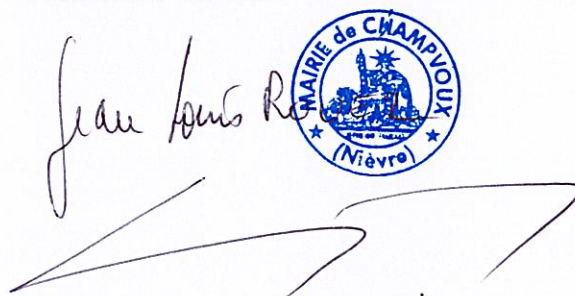 Jean Louis
MAIRIE de CHAMPVOUX
(Nièvre)